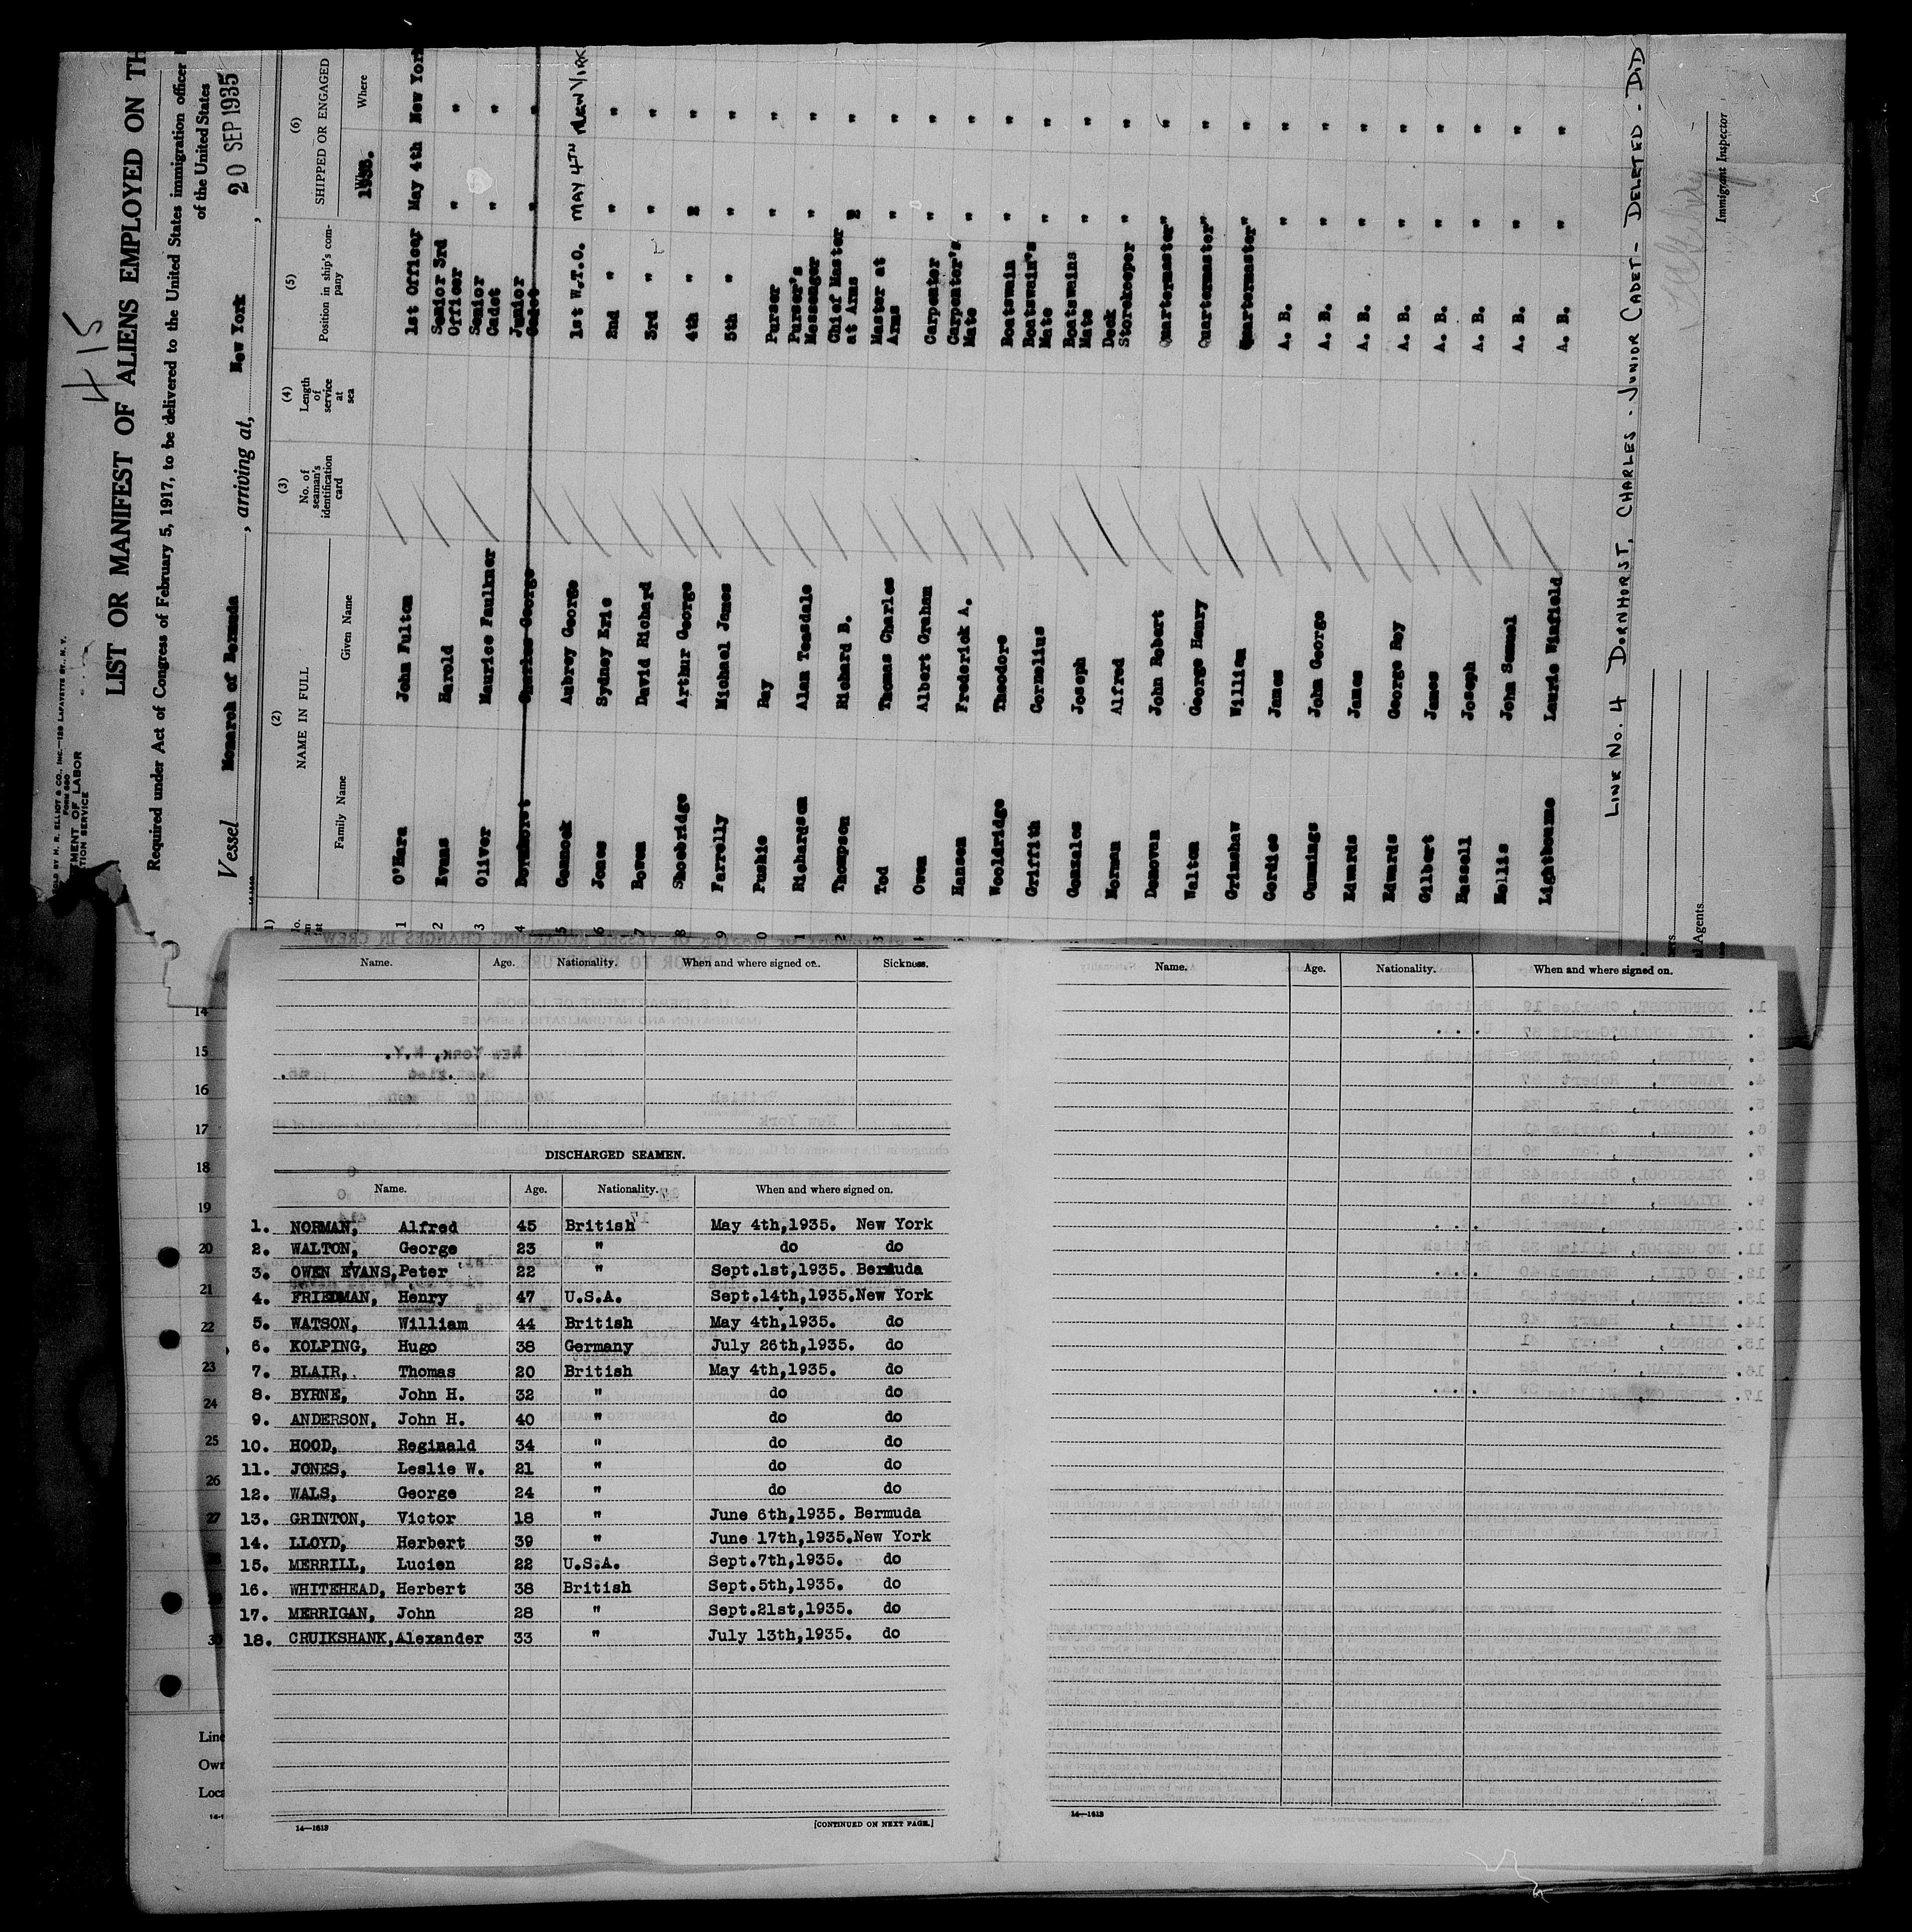 415
SOLD BY H. R. ELLIOT & CO., INC.—129 LAFAYETTE ST., N. Y.
FORM 680
MENT OF LABOR
TION SERVICE
LIST OR MANIFEST OF ALIENS EMPLOYED ON TH
Required under Act of Congress of February 5, 1917, to be delivered to the United States immigration officer
of the United States
Vessel Monarch of Bermuda, arriving at, New York, 20 SEP 1935
(2) (3) (4) (5) (6)
NAME IN FULL No. of seaman's identification card Length of service at sea Position in ship's company SHIPPED OR ENGAGED
Family Name Given Name 1935. Where
1 O'Hara John Fulton 1st Officer May 4th New York
2 Evans Harold Senior 3rd Officer " "
3 Oliver Maurice Faulkner Senior Cadet " "
4 Dornhorst Charles George Junior Cadet " "
5 Cammock Aubrey George 1st W.T.O. MAY 4TH NEW YORK
6 Jones Sydney Eric 2nd " " "
7 Bowen David Richard 3rd " " "
8 Shoebridge Arthur George 4th " " "
9 Farrelly Michael James 5th " " "
0 Puskie Ray Purser " "
1 Richardson Alan Teasdale Purser's Messenger " "
2 Thompson Richard B. Chief Master at Arms " "
3 Tod Thomas Charles Master at Arms " "
Owen Albert Graham Carpenter " "
Hansen Frederick A. Carpenter's Mate " "
Wooldridge Theodore Boatswain " "
Griffith Cornelius Boatswain's Mate " "
Gonzales Joseph Boatswains Mate " "
Norman Alfred Deck Storekeeper " "
Donovan John Robert Quartermaster " "
Walton George Henry Quartermaster " "
Grimshaw William Quartermaster " "
Cordies James A. B. " "
Cummings John George A. B. " "
Edwards James A. B. " "
Edwards George Roy A. B. " "
Gilbert James A. B. " "
Hassell Joseph A. B. " "
Hollis John Samuel A. B. " "
Lightbourne Laurie Winfield A. B. " "
LINE No. 4 DORNHORST, CHARLES. JUNIOR CADET- DELETED. DID
Immigrant Inspector
Agents
Name. Age. Nationality. When and where signed on. Sickness.
DISCHARGED SEAMEN.
Name. Age. Nationality. When and where signed on.
1. NORMAN, Alfred 45 British May 4th,1935. New York
2. WALTON, George 23 " do do
3. OWEN EVANS, Peter 22 " Sept.1st,1935. Bermuda
4. FRIEDMAN, Henry 47 U.S.A. Sept.14th,1935.New York
5. WATSON, William 44 British May 4th,1935. do
6. KOLPING, Hugo 38 Germany July 26th,1935. do
7. BLAIR, Thomas 20 British May 4th,1935. do
8. BYRNE, John H. 32 " do do
9. ANDERSON, John H. 40 " do do
10. HOOD, Reginald 34 " do do
11. JONES, Leslie W. 21 " do do
12. WALS, George 24 " do do
13. GRINTON, Victor 18 " June 6th,1935. Bermuda
14. LLOYD, Herbert 39 " June 17th,1935.New York
15. MERRILL, Lucien 22 U.S.A. Sept.7th,1935. do
16. WHITEHEAD, Herbert 38 British Sept.5th,1935. do
17. MERRIGAN, John 28 " Sept.21st,1935. do
18. CRUIKSHANK, Alexander 33 " July 13th,1935. do
14—1613 [CONTINUED ON NEXT PAGE.]
Name. Age. Nationality. When and where signed on.
14—1613
14
15
16
17
18
19
20
21
22
23
24
25
26
27
30
Line
Own
Loca